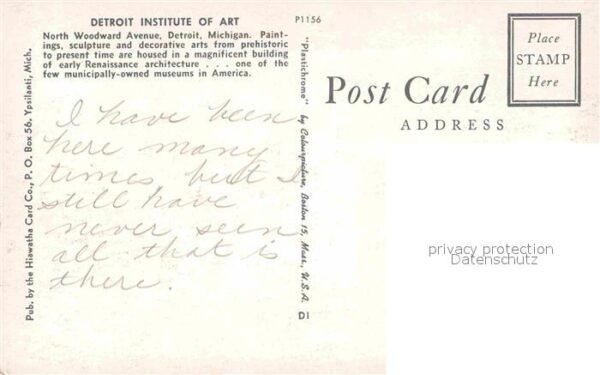 DETROIT INSTITUTE OF ART
North Woodward Avenue, Detroit, Michigan. Paint-
ings, sculpture and decorative arts from prehistoric
to present time are housed in a magnificent building
of early Renaissance architecture . . . one of the
few municipally-owned museums in America.
P1156
I have been
here many
times but I
still have
never seen
all that is
there.
Pub. by the Hiawatha Card Co., P. O. Box 56, Ypsilanti, Mich.
"Plastichrome" by Colourpicture, Boston 15, Mass., U.S.A.
D1
Post Card
ADDRESS
Place
STAMP
Here
privacy protection
Datenschutz